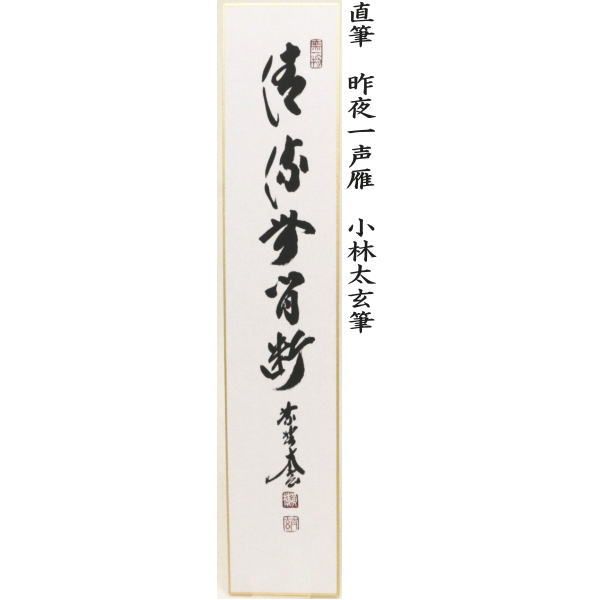 直筆 昨夜一声雁 小林太玄筆
清流無間断